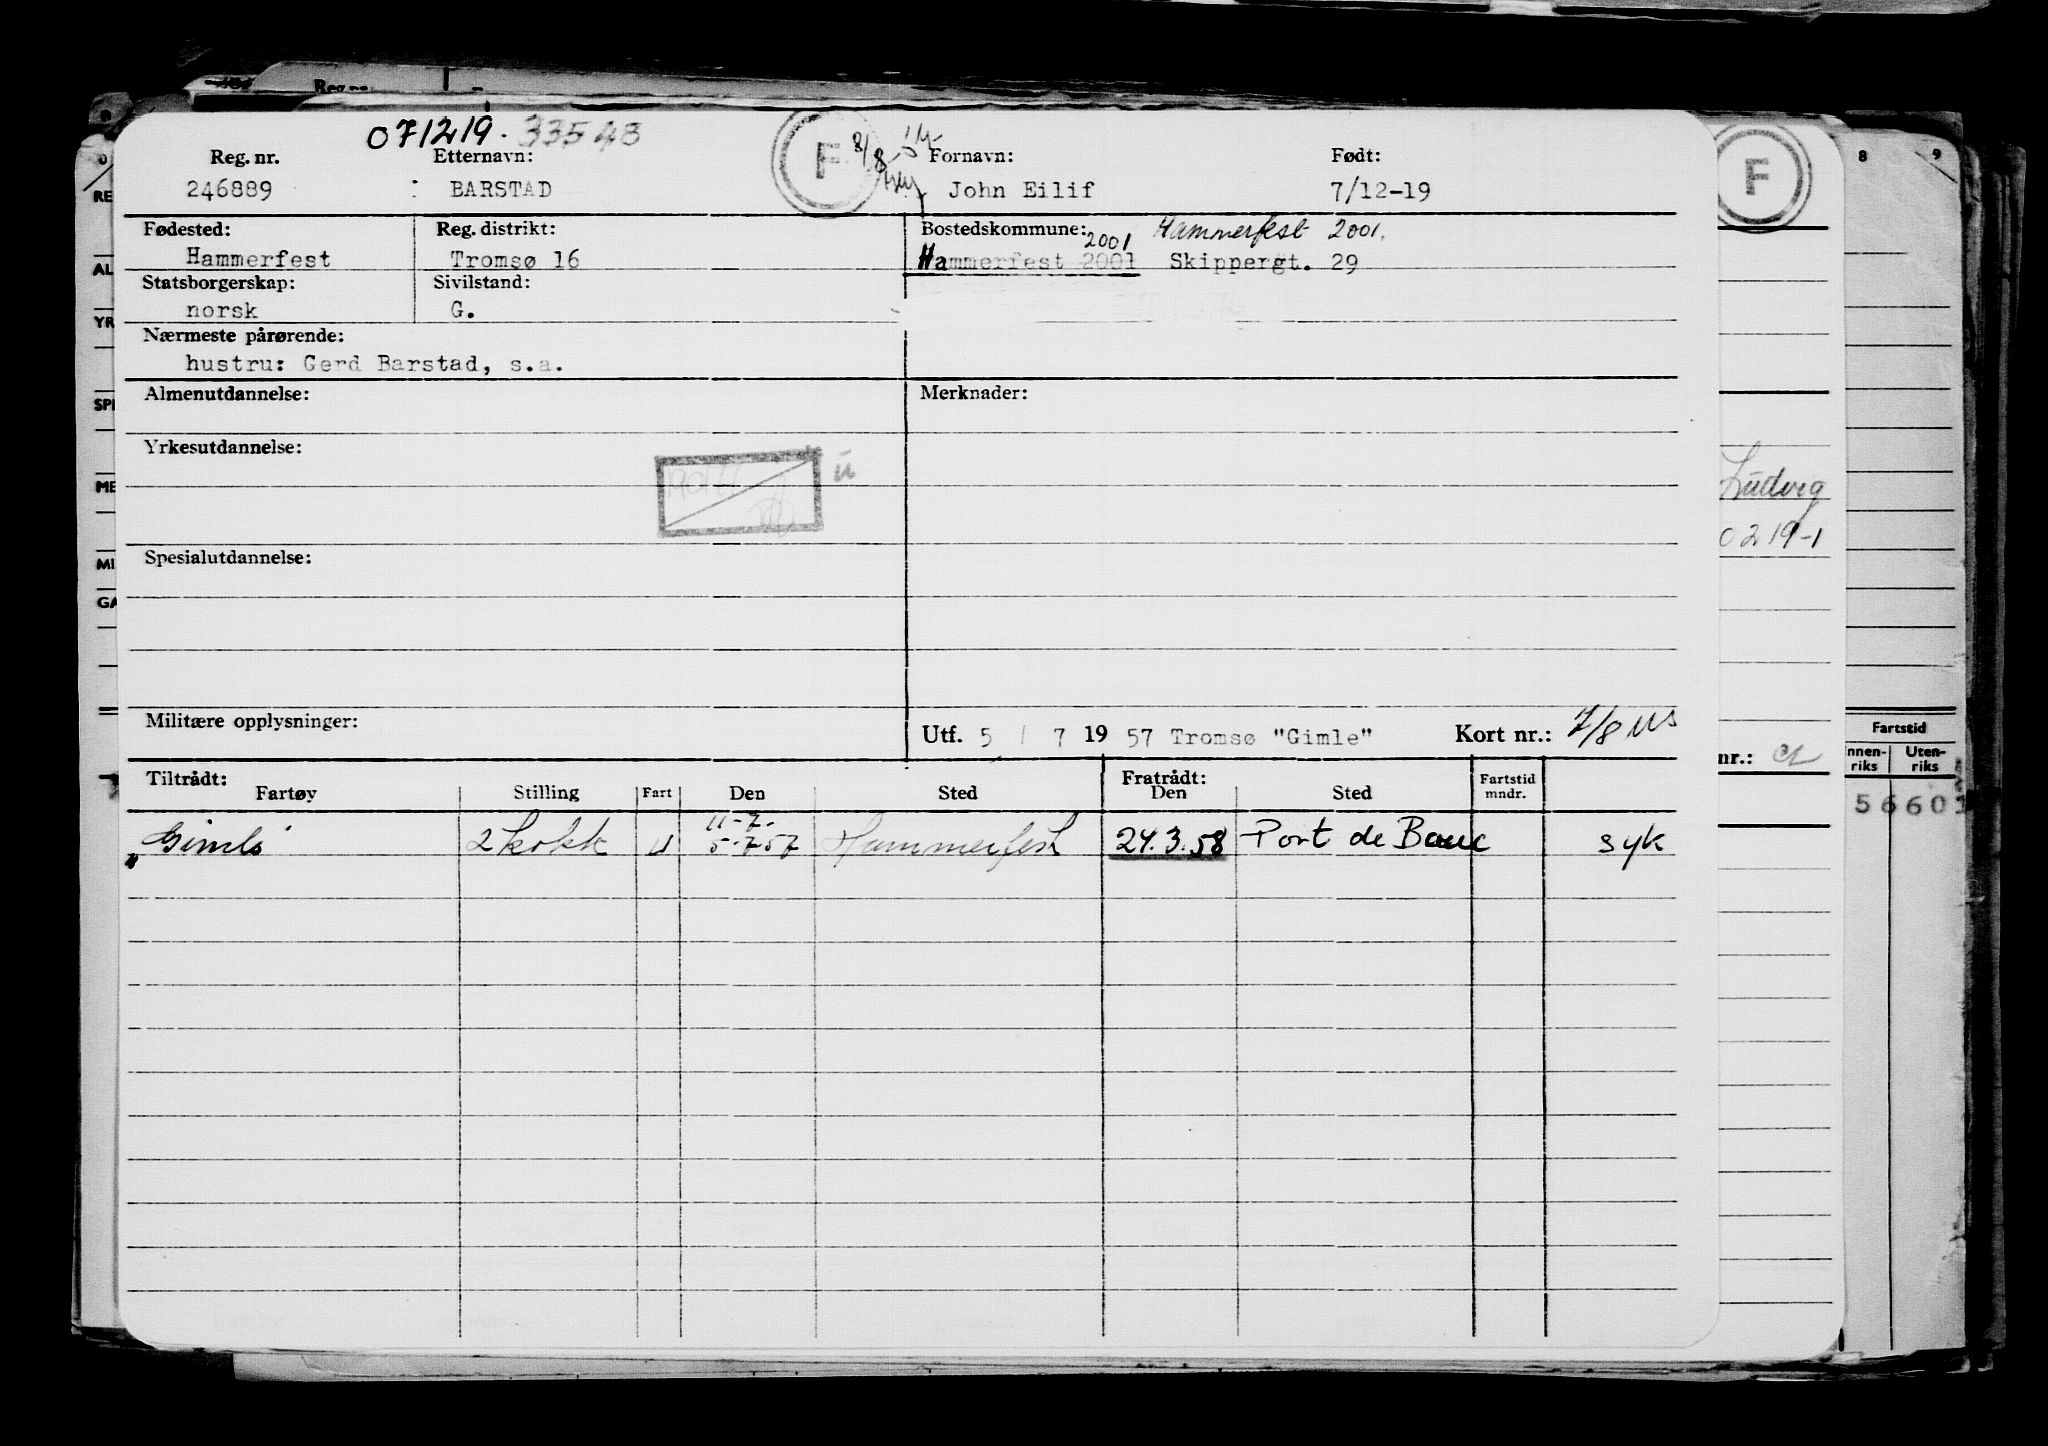 Reg.nr.
071219. 33548
Reg. nr. Etternavn: F 8/8- Fornavn: Født: F 8 9
246889 BARSTAD John Eilif 7/12-19
RE
Fødested: Reg. distrikt: Bostedskommune: 2001 Hammerfest 2001.
Hammerfest Tromsø 16 Hammerfest 2001 Skippergt. 29
AL
Statsborgerskap: Sivilstand:
norsk G.
YR
Nærmeste pårørende:
hustru: Gerd Barstad, s.a.
Almenutdannelse: Merknader:
SPE
Yrkesutdannelse:
ME Ludvig
0219-1
Spesialutdannelse:
MI
GA
Militære opplysninger: Utf. 5 / 7 19 57 Tromsø "Gimle" Kort nr.: 7/8 us
Fartstid
nr.: Innen-riks Uten-riks
Tiltrådt: Fratrådt: Fartstid
Fartøy Stilling Fart Den Sted Den Sted mndr.
56601
11-7-
Gimle 2 kokk U 5-7-57 Hammerfest 24.3.58 Port de Bouc syk